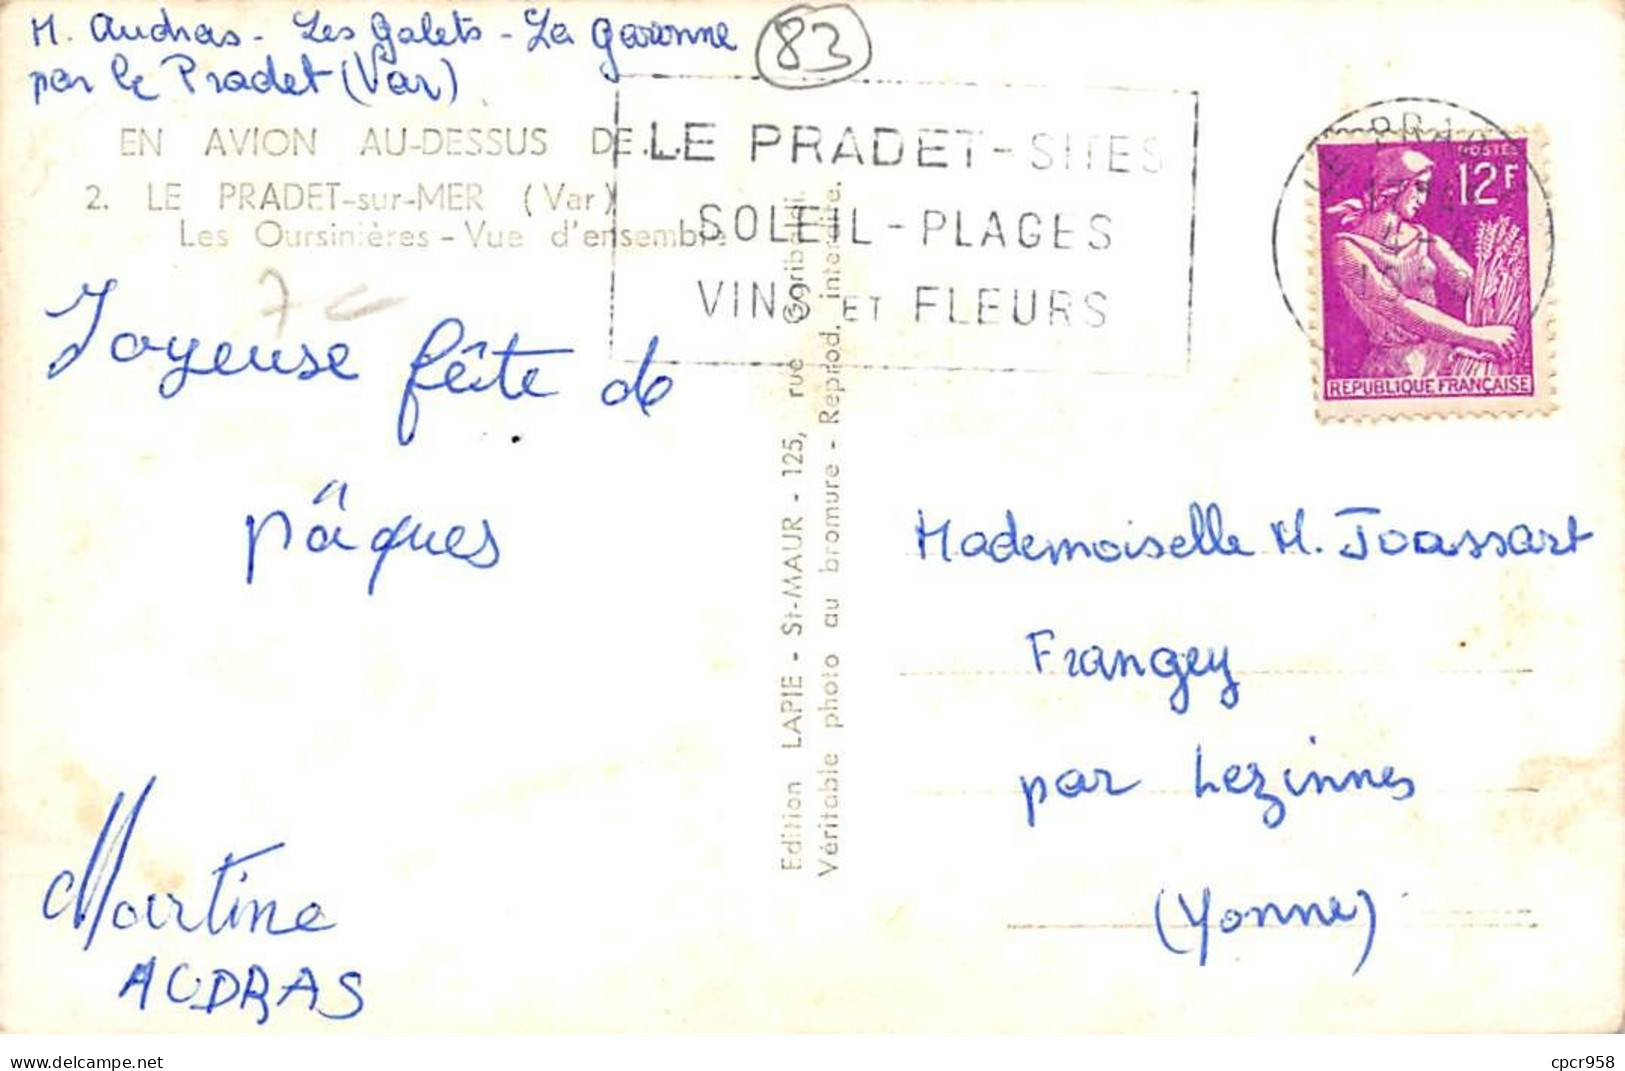 M. Audras - Les Galets - La Garonne
par le Pradet (Var)
83
EN AVION AU-DESSUS DE...
2. LE PRADET-sur-MER (Var)
Les Oursinières - Vue d'ensemble
LE PRADET - SITES
SOLEIL - PLAGES
VINS ET FLEURS
POSTES
12F
REPUBLIQUE FRANÇAISE
Joyeuse fête de
pâques
Martine
AUDRAS
Edition LAPIE - St-MAUR - 125, rue Garibaldi.
Véritable photo au bromure - Reprod. interdite.
Mademoiselle M. Joassart
Frangey
par Lezinnes
(Yonne)
cpcr958